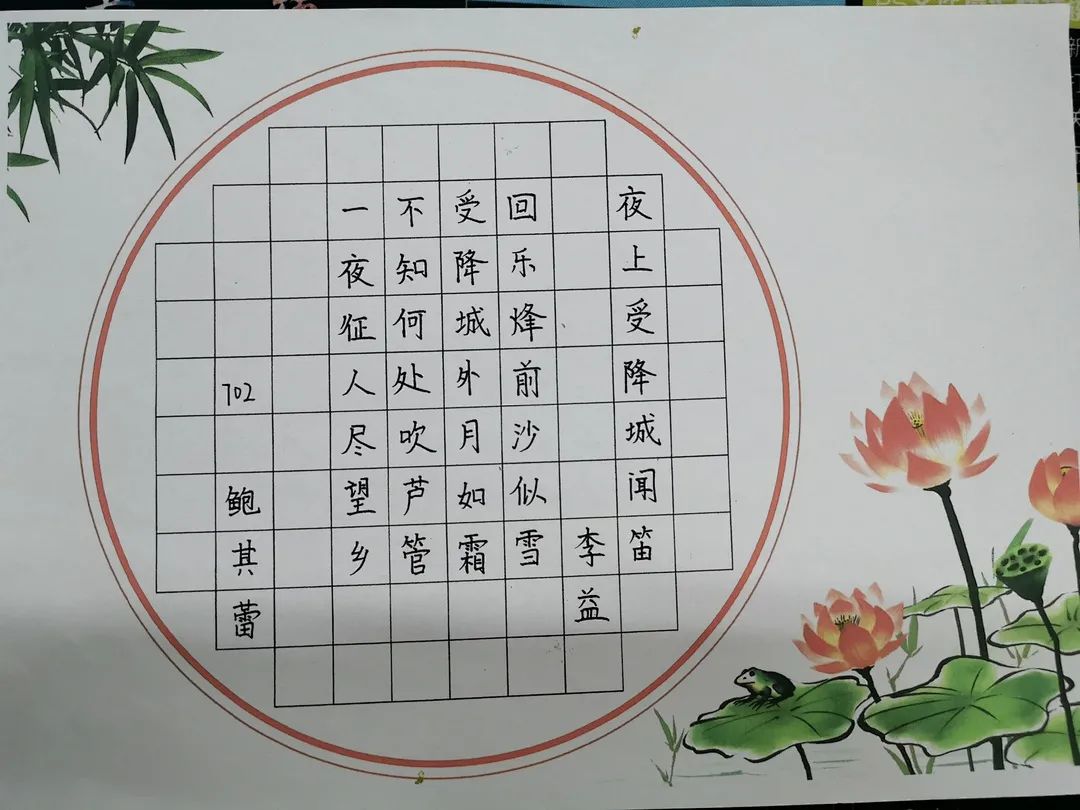 夜上受降城闻笛
李益
回乐烽前沙似雪
受降城外月如霜
不知何处吹芦管
一夜征人尽望乡
702 鲍其蕾